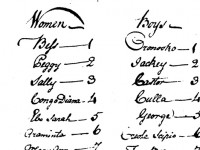 Women
Bess — 1
Peggy — 2
Sally — 3
Congo Diana — 4
Sarah — 5
Araminta — 6
7
Boys
Oronoko — 1
Jackey — 2
Castor — 3
Culla — 4
George — 5
Creole Scipio — 6